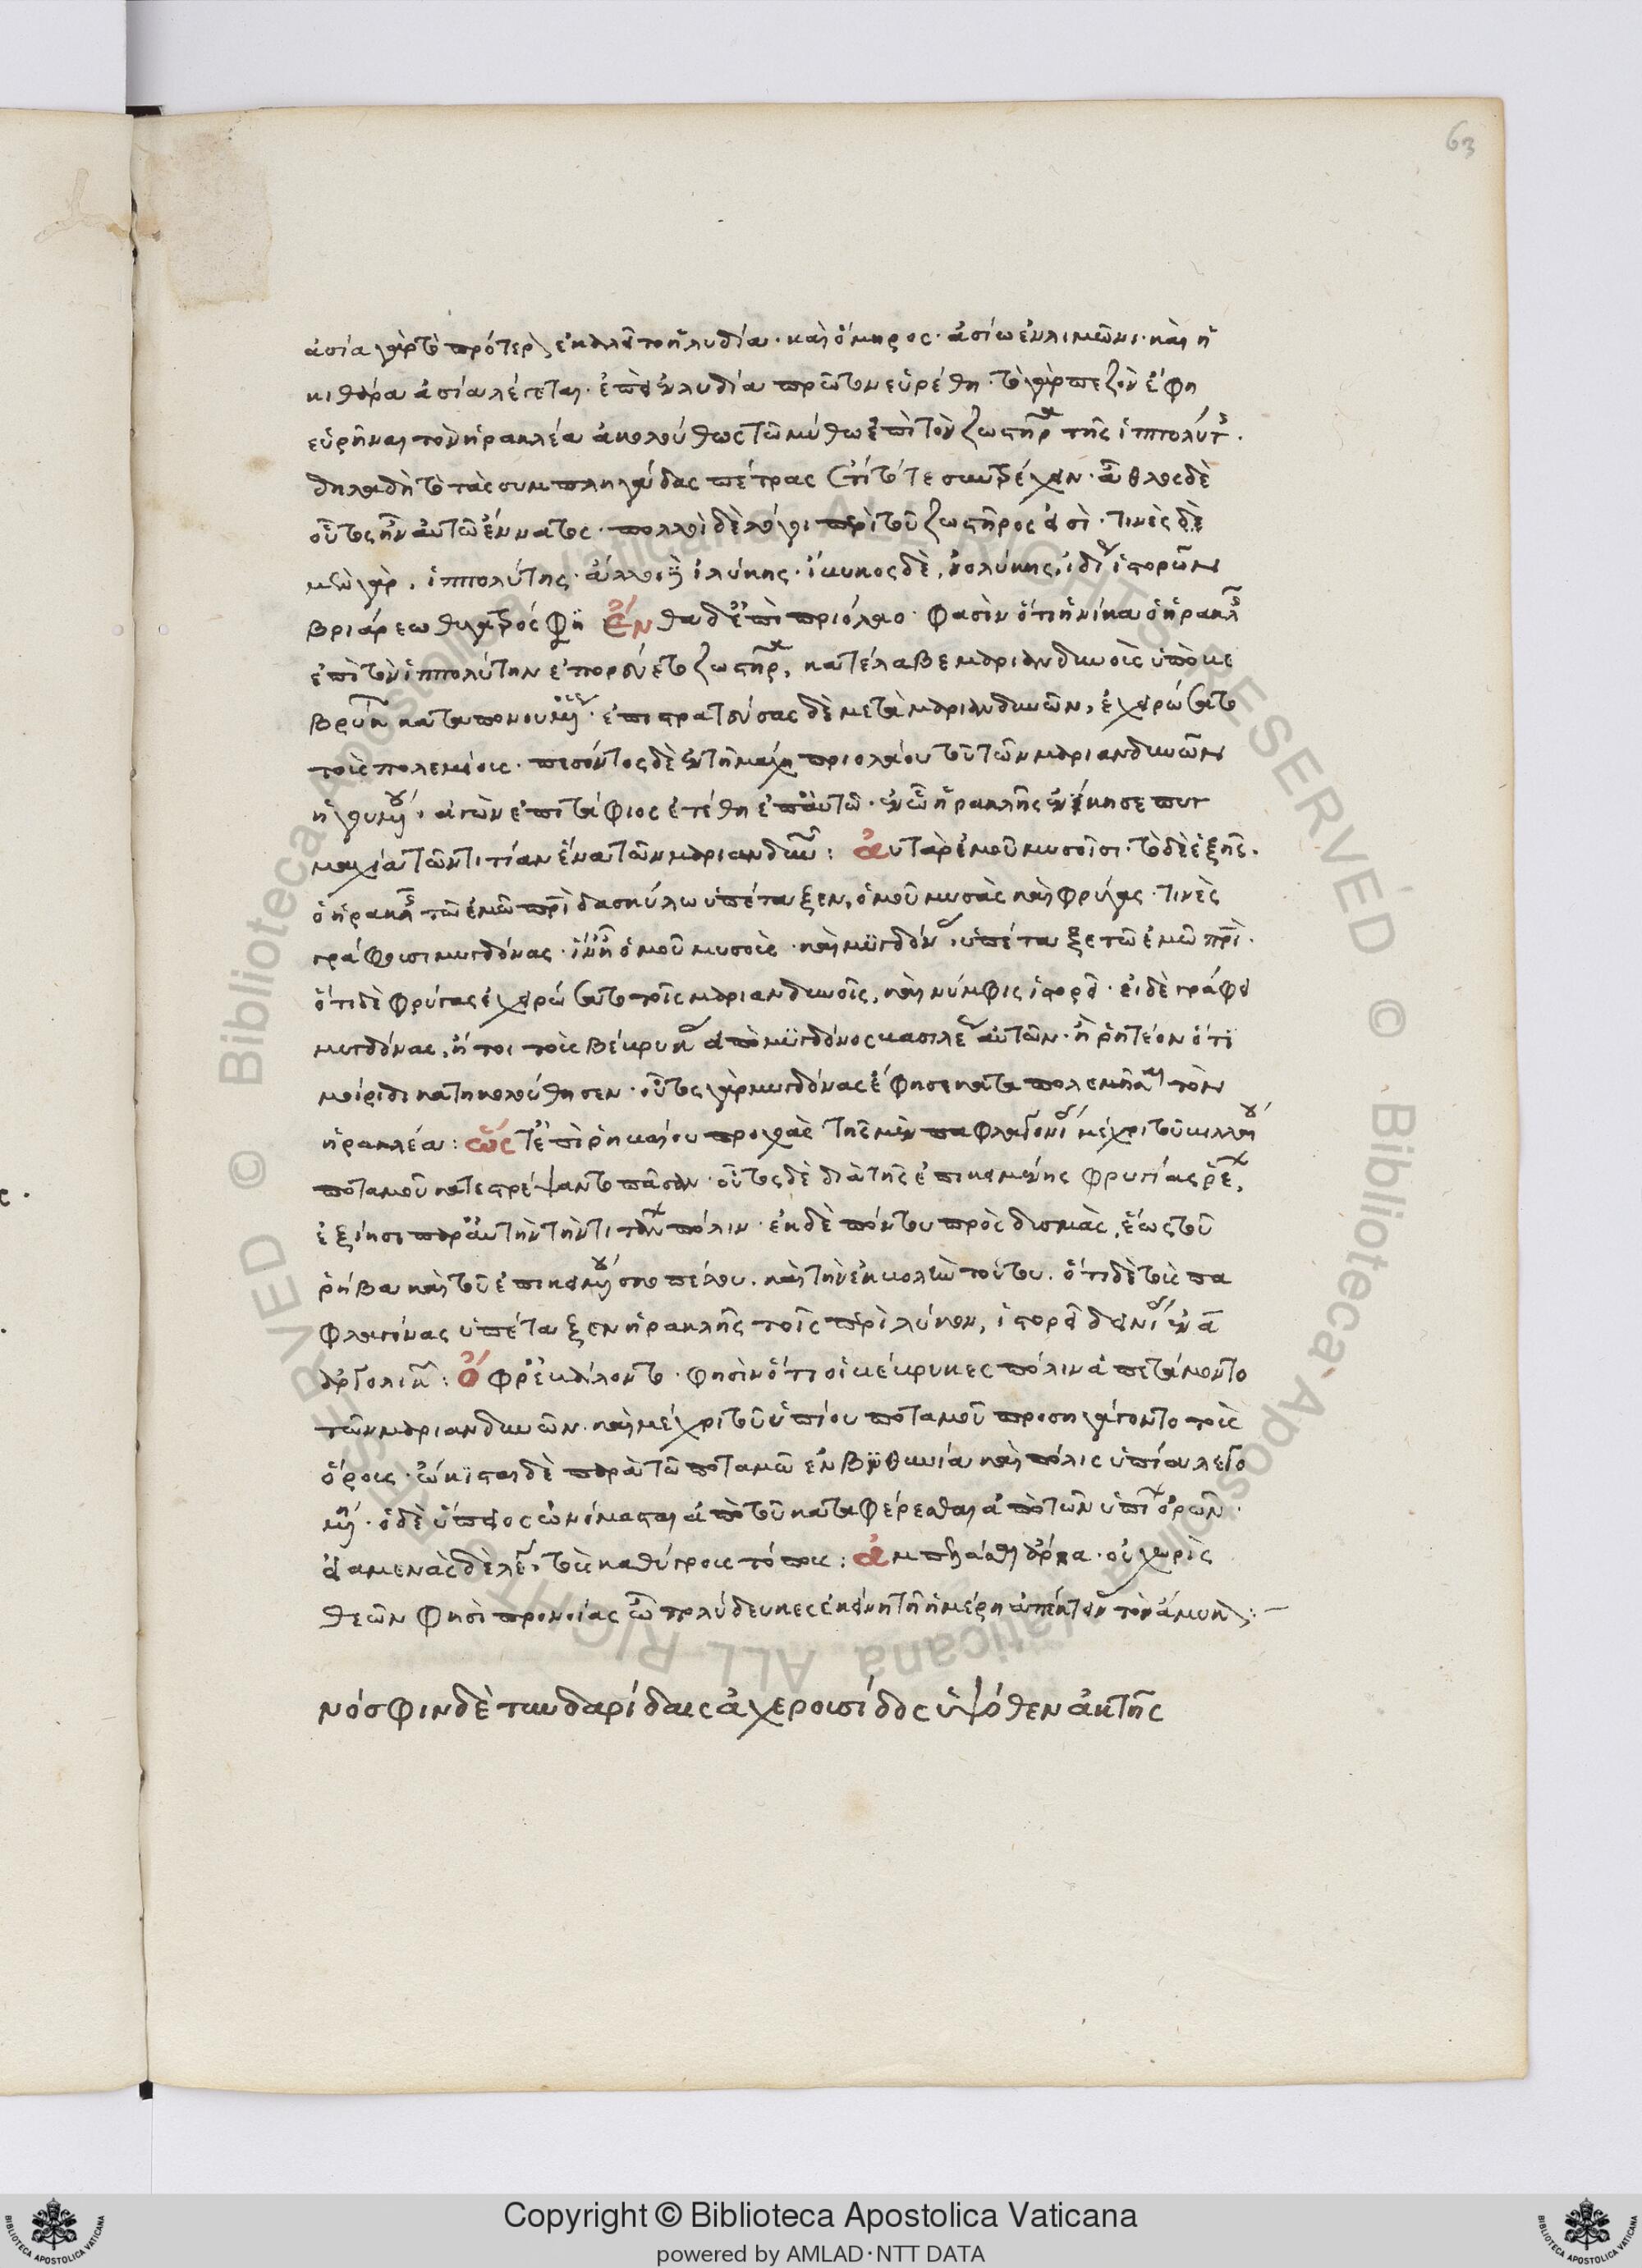 63
ἀσία γὰρ τὸ πρότερον ἐκαλεῖτο ἡ λυδία· καὶ ὅμηρος· ἀσίω ἐν λιμῶνι· καὶ ἡ
κιθάρα ἀσία λέγεται· ἐπεὶ ἐν λυδία πρῶτον εὑρέθη· τὸ γὰρ πεζὸν ἔφη
εὑρῆναι τὸν ἡρακλέα ἀκολούθως τῶ μύθω ἐπὶ τὸν ζωστῆρα τῆς ἱππολύτης·
δηλαδὴ τὸ τὰς συμπληγάδας πέτρας ἔτι τότε συντρέχειν· ἆθλος δὲ
οὗτος ἦν αὐτῶ ἔννατος· πολλοὶ δὲ λόγοι περὶ τοῦ ζωστῆρος εἰσὶ· τινὲς δὲ
μὲν γὰρ, ἱππολύτης· ἄλλοι δηϊλύκης· ἴβυκος δὲ, ἰολύκης, ἰδίως ἱστορῶν
βριάρεω θυγατρός φη ἔνθα δ' ἐπὶ πριόλαο· φασὶν ὅτι ἡνίκα ὁ ἡρακλῆς
ἐπὶ τὸν ἱππολύτην ἐπορεύετο ζωστῆρα, κατέλαβε μαριανδυνοὺς ὑπὸ βε
βρύκων καταπονουμένους· ἐπιστρατεύσας δὲ μετὰ μαριανδυνῶν, ἐχειρώσατο
τοὺς πολεμίους· πεσόντος δὲ ἐν τῆ μάχη πριολάου τοῦ τῶν μαριανδυνῶν
ἡγουμένου, ἀγὼν ἐπιτάφιος ἐτέθη ἐπ' αὐτῶ· ἐν ὧ ἡρακλῆς ἐνίκησε πυγ
μαχία τῶν τιτίαν ἕνα τῶν μαριανδυνῶν: αὐτὰρ ὁμοῦ μυσοῖσι· τὸ δὲ ἑξῆς·
ὁ ἡρακλῆς τῶ ἐμῶ πατρὶ δασκύλω ὑπέταξεν, ὁμοῦ μυσὰς καὶ φρύγας· τινὲς
γράφουσι μυγδόνας· ἵν' ἦ ὁμοῦ μυσοὺς καὶ μυγδόνας ὑπέταξε τῶ ἐμῶ πατρὶ·
ὅτι δὲ φρύγας ἐχειρώσατο τοῖς μαριανδυνοῖς, καὶ νύμφις ἱστορεῖ· εἰ δὲ γράφει
μυγδόνας, ἤτοι τοὺς βέβρυκας ἀπὸ μυγδόνος βασιλέως αὐτῶν· ἢ ῥητέον ὅτι
μοίριδι κατηκολούθησεν· οὗτος γὰρ μυγδόνας ἔφησε καταπολεμῆσαι τὸν
ἡρακλέα: ὥς τ' ἐπὶ ῥηβαίου προχοὰς τῆς μὲν παφλαγονίας μέχρι τοῦ βιλλαίου
ποταμοῦ κατεστρέψαντο πᾶσαν· οὗτος δὲ διὰ τῆς ἐπικειμένης φρυγίας ῥέων,
ἐξίησι παρ' αὐτὴν τὴν τιτάνων πόλιν· ἐκ δὲ πόντου πρὸς δυσμὰς, ἕως τοῦ
ῥήβα καὶ τοῦ ἐπικειμένου σκοπέλου· καὶ τὴν ἐκβολὴν τούτου· ὅτι δὲ τοὺς πα
φλαγόνας ὑπέταξεν ἡρακλῆς τοῖς περὶ λύκον, ἱστορεῖ δεινίας ἐν α
ἀργολικῶν: ὄφρ' ἐβάλοντο· φησὶν ὅτι οἱ βέβρυκες πόλιν ἀπετάμοντο
τῶν μαριανδυνῶν· καὶ μέχρι τοῦ ὑπίου ποταμοῦ προσηγάγοντο τοὺς
ὅρους· ὤκισται δὲ παρὰ τῶ ποταμῶ ἐν βυθυνία καὶ πόλις ὑπία λεγο
μένη· ὁ δὲ ὕπιος ὠνόμασται ἀπὸ τοῦ καταφέρεσθαι ἀπὸ τῶν ὑπίων ὀρῶν·
εἱαμενὰς δὲ λέγει, τοὺς καθύγρους τόπους: ἀμπελάαθ' ὅρκα· οὐ χωρὶς
θεῶν φησὶ προνοίας ὦ πολύδευκες ἐκείνη τῆ ἡμέρη ἀπέκτεινας τὸν ἄμυκον:–
νόσφιν δὲ τυνδαρίδαις ἀχερουσίδος ὑψόθεν ἀκτῆς
Copyright © Biblioteca Apostolica Vaticana
powered by AMLAD·NTT DATA